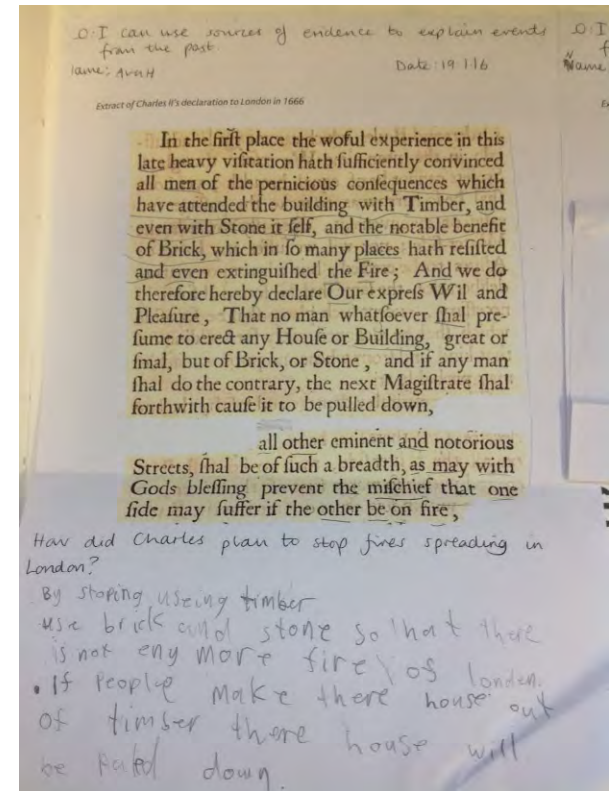 O: I can use sources of evidence to explain events
from the past.
Name: Ava H
Date: 19.1.16
Extract of Charles II's declaration to London in 1666
In the firſt place the woful experience in this
late heavy viſitation hath ſufficiently convinced
all men of the pernicious conſequences which
have attended the building with Timber, and
even with Stone it ſelf, and the notable benefit
of Brick, which in ſo many places hath reſiſted
and even extinguiſhed the Fire; And we do
therefore hereby declare Our expreſs Wil and
Pleaſure, That no man whatſoever ſhal pre-
ſume to erect any Houſe or Building, great or
ſmal, but of Brick, or Stone, and if any man
ſhal do the contrary, the next Magiſtrate ſhal
forthwith cauſe it to be pulled down,
all other eminent and notorious
Streets, ſhal be of ſuch a breadth, as may with
Gods bleſſing prevent the miſchief that one
ſide may ſuffer if the other be on fire,
How did Charles plan to stop fires spreading in
London?
By stoping useing timber
use brick and stone so that there
is not eny more fire of london.
. If people make there house out
of timber there house will
be down.
O: I
Name